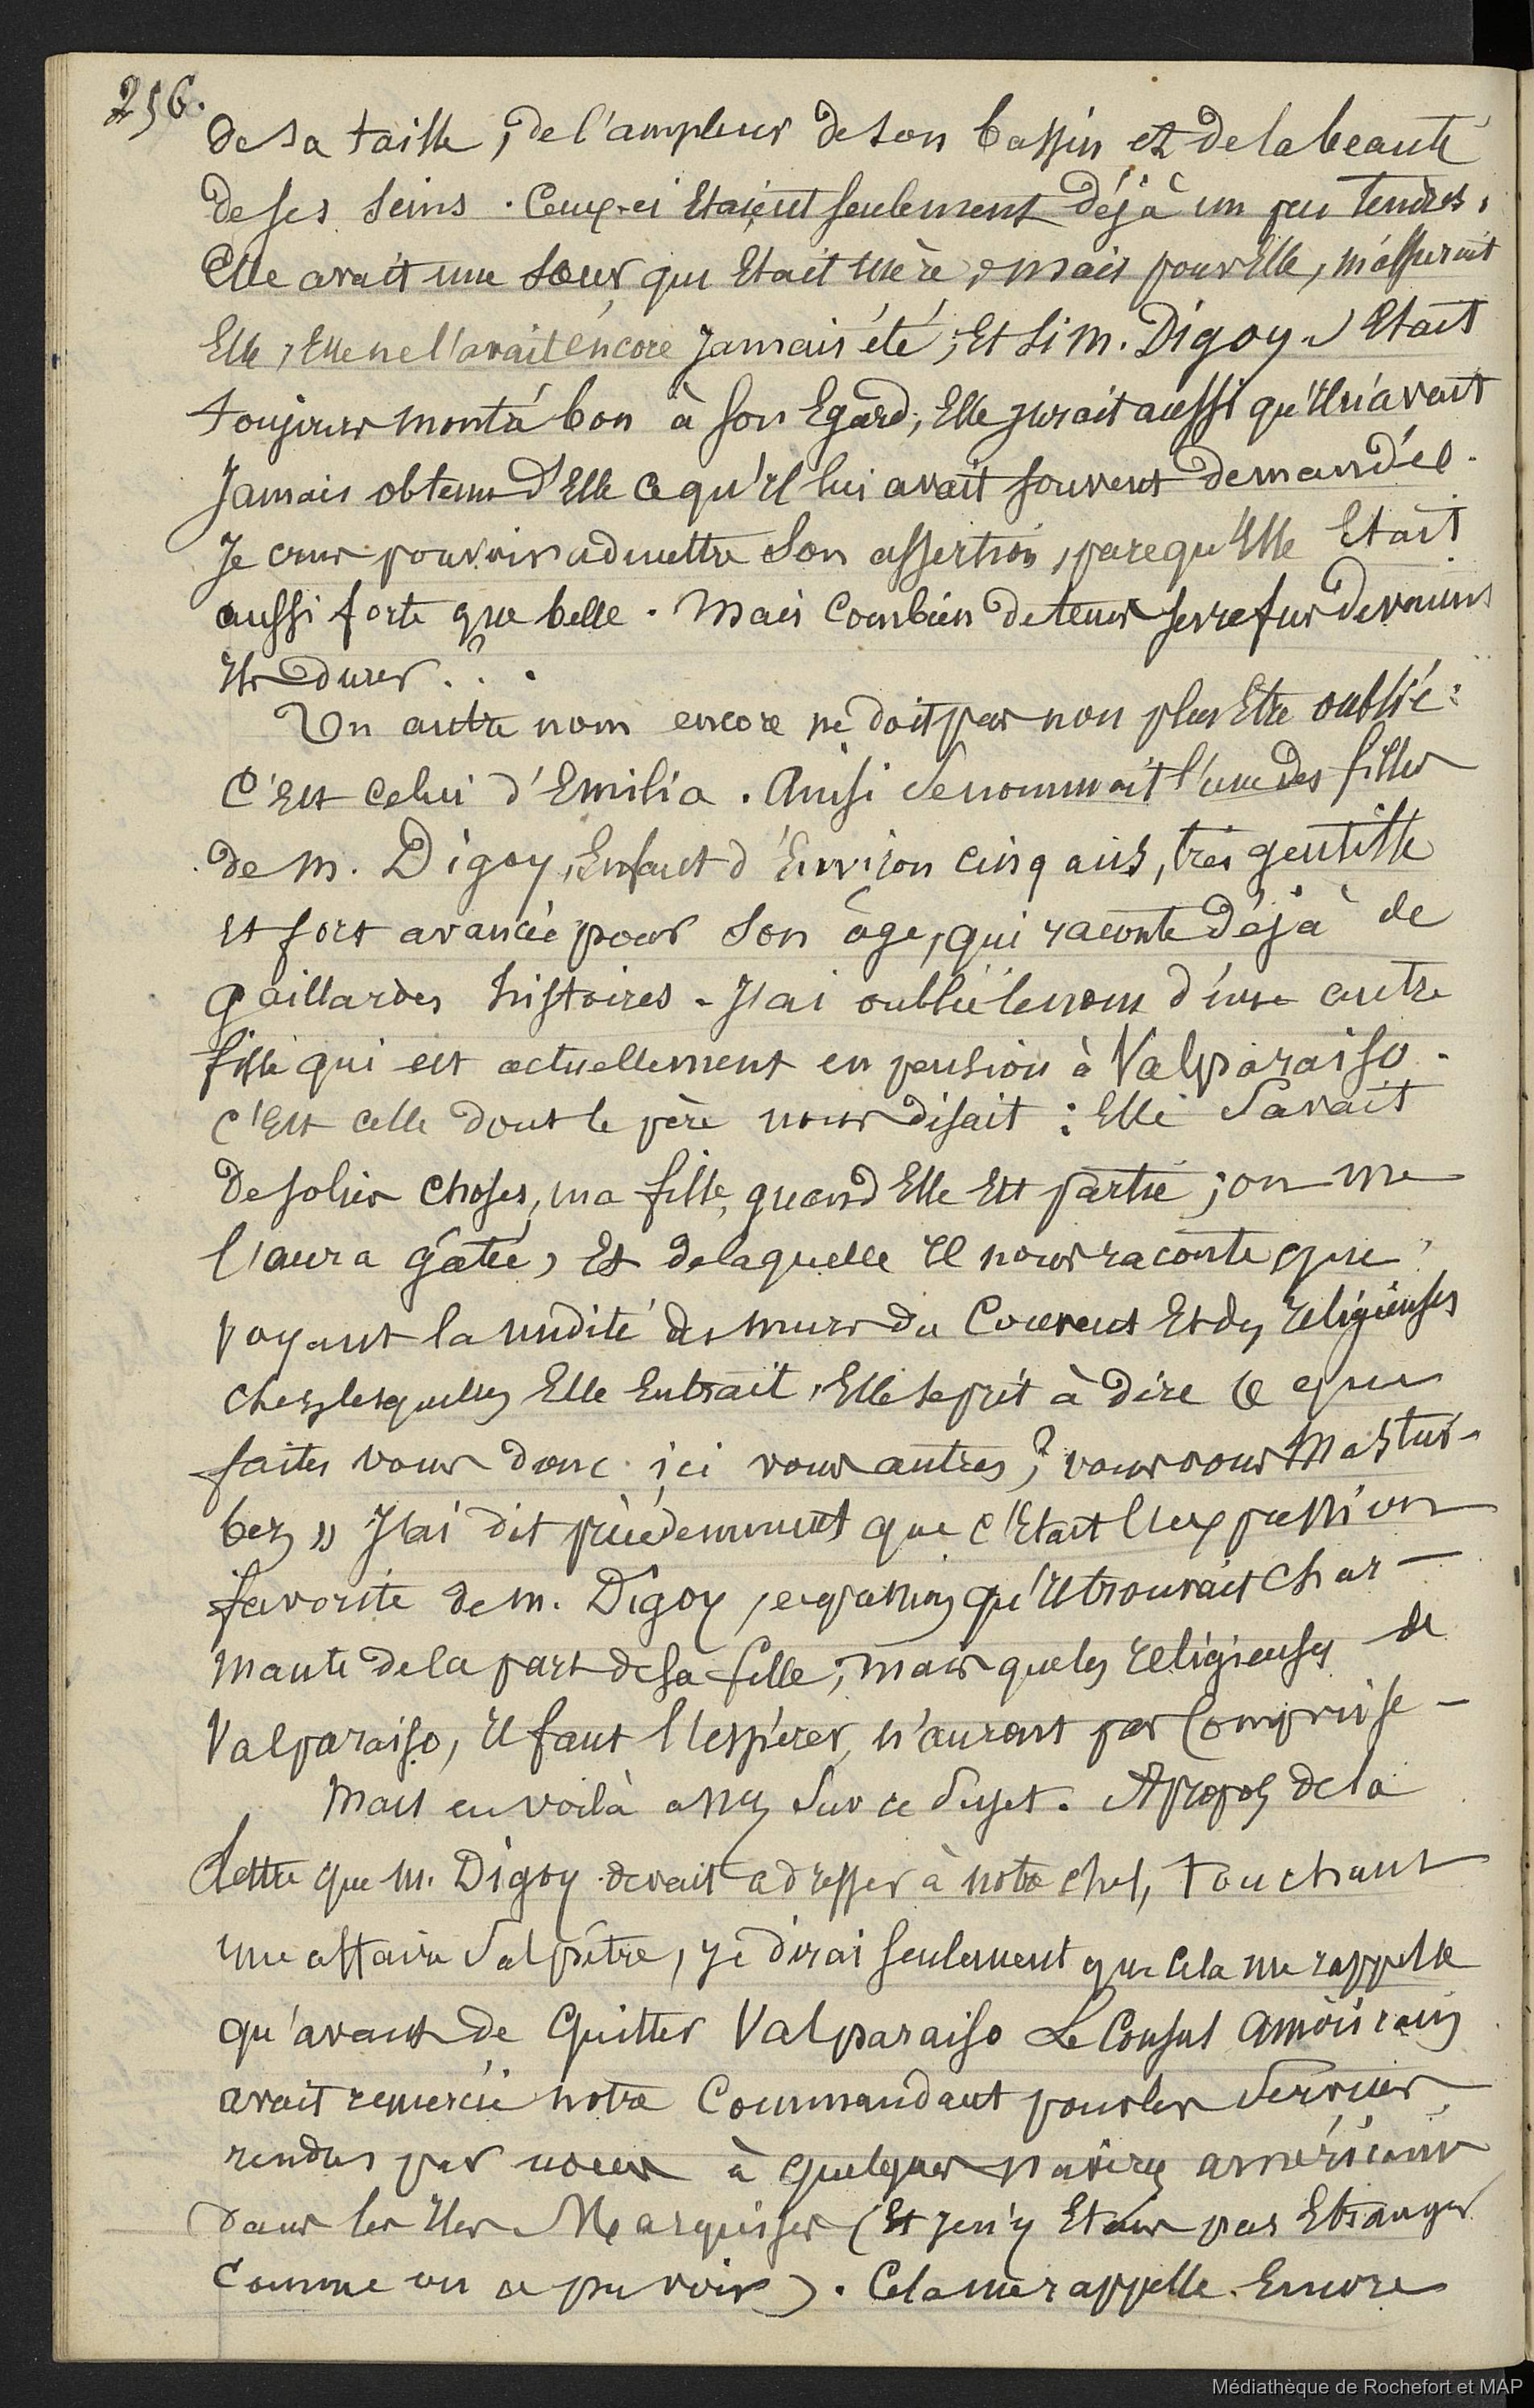 256.
de sa taille, de l'ampleur de son bassin et de la beauté
de ses seins. Ceux-ci étaient seulement déjà un peu tendres.
Elle avait une sœur qui était mère, mais pour elle, m'assurait
Elle, Elle ne l'avait encore jamais été; Et si M. Digoy était
toujours monta bon à son Egard, Elle jurait aussi qu'il n'avait
Jamais obtenu d'Elle ce qu'il lui avait souvent demandée.
Je crus pouvoir admettre son assertion, parcequ'Elle Etait
aussi forte que belle. Mais combien de tems ses refus devaient
Ils durer ? . .
Un autre nom encore ne doit pas non plus Etre oublié :
C'Est celui d'Emilia. Ainsi se nommait l'une des filles
de M. Digoy, Enfant d'Environ cinq ans, très gentille
et fort avancée pour son âge, qui raconte déjà de
gaillardes histoires. J'ai oublié le nom d'une autre
fille qui est actuellement en pension à Valparaiso.
C'Est celle dont le père nous disait : Elle savait
de jolies choses, ma fille, quand Elle Est partie ; on me
l'aura gâtée, Et de laquelle Il nous raconte que
voyant la nudité des murs du Couvent Et des religieuses
chez lesquelles Elle Entrait, Elle se prit à dire « que
faites vous donc ici vous autres ? vous vous mastur-
bez » J'ai dit précédemment que c'Etait l'expression
favorite de M. Digoy, expression qu'Il trouvait char-
mante de la part de sa fille ; mais que les religieuses de
Valparaiso, Il faut l'espérer, n'auront pas comprise -
Mais en voilà assez sur ce sujet. A propos de la
lettre que M. Digoy devait adresser à notre chef, touchant
une affaire salpêtre, je dirai seulement que cela me rappelle
qu'avant de quitter Valparaiso Le Consul américain
avait remercié notre Commandant pour les services
rendus par nous à quelques navires américains
dans les Iles Marquises (Et je n'y Etais pas Etranger
comme on a pu voir). Cela me rappelle Encore
Médiathèque de Rochefort et MAP